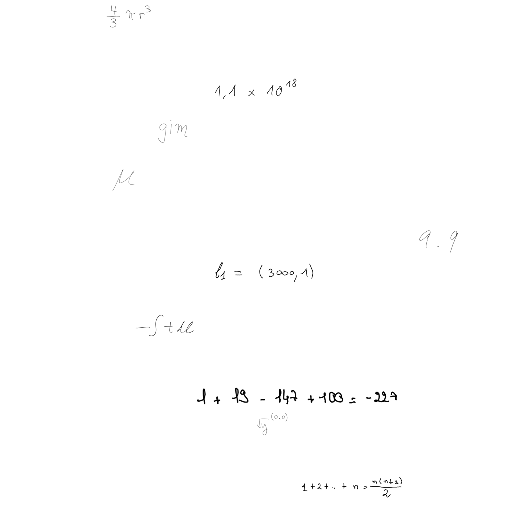 4/3 π r³
1,1 × 10¹⁸
gim
μ
9.9
l₁ = (3000, 1)
1 + 19 - 147 + 103 = -227
1+2+..+ n = n(n+1)/2